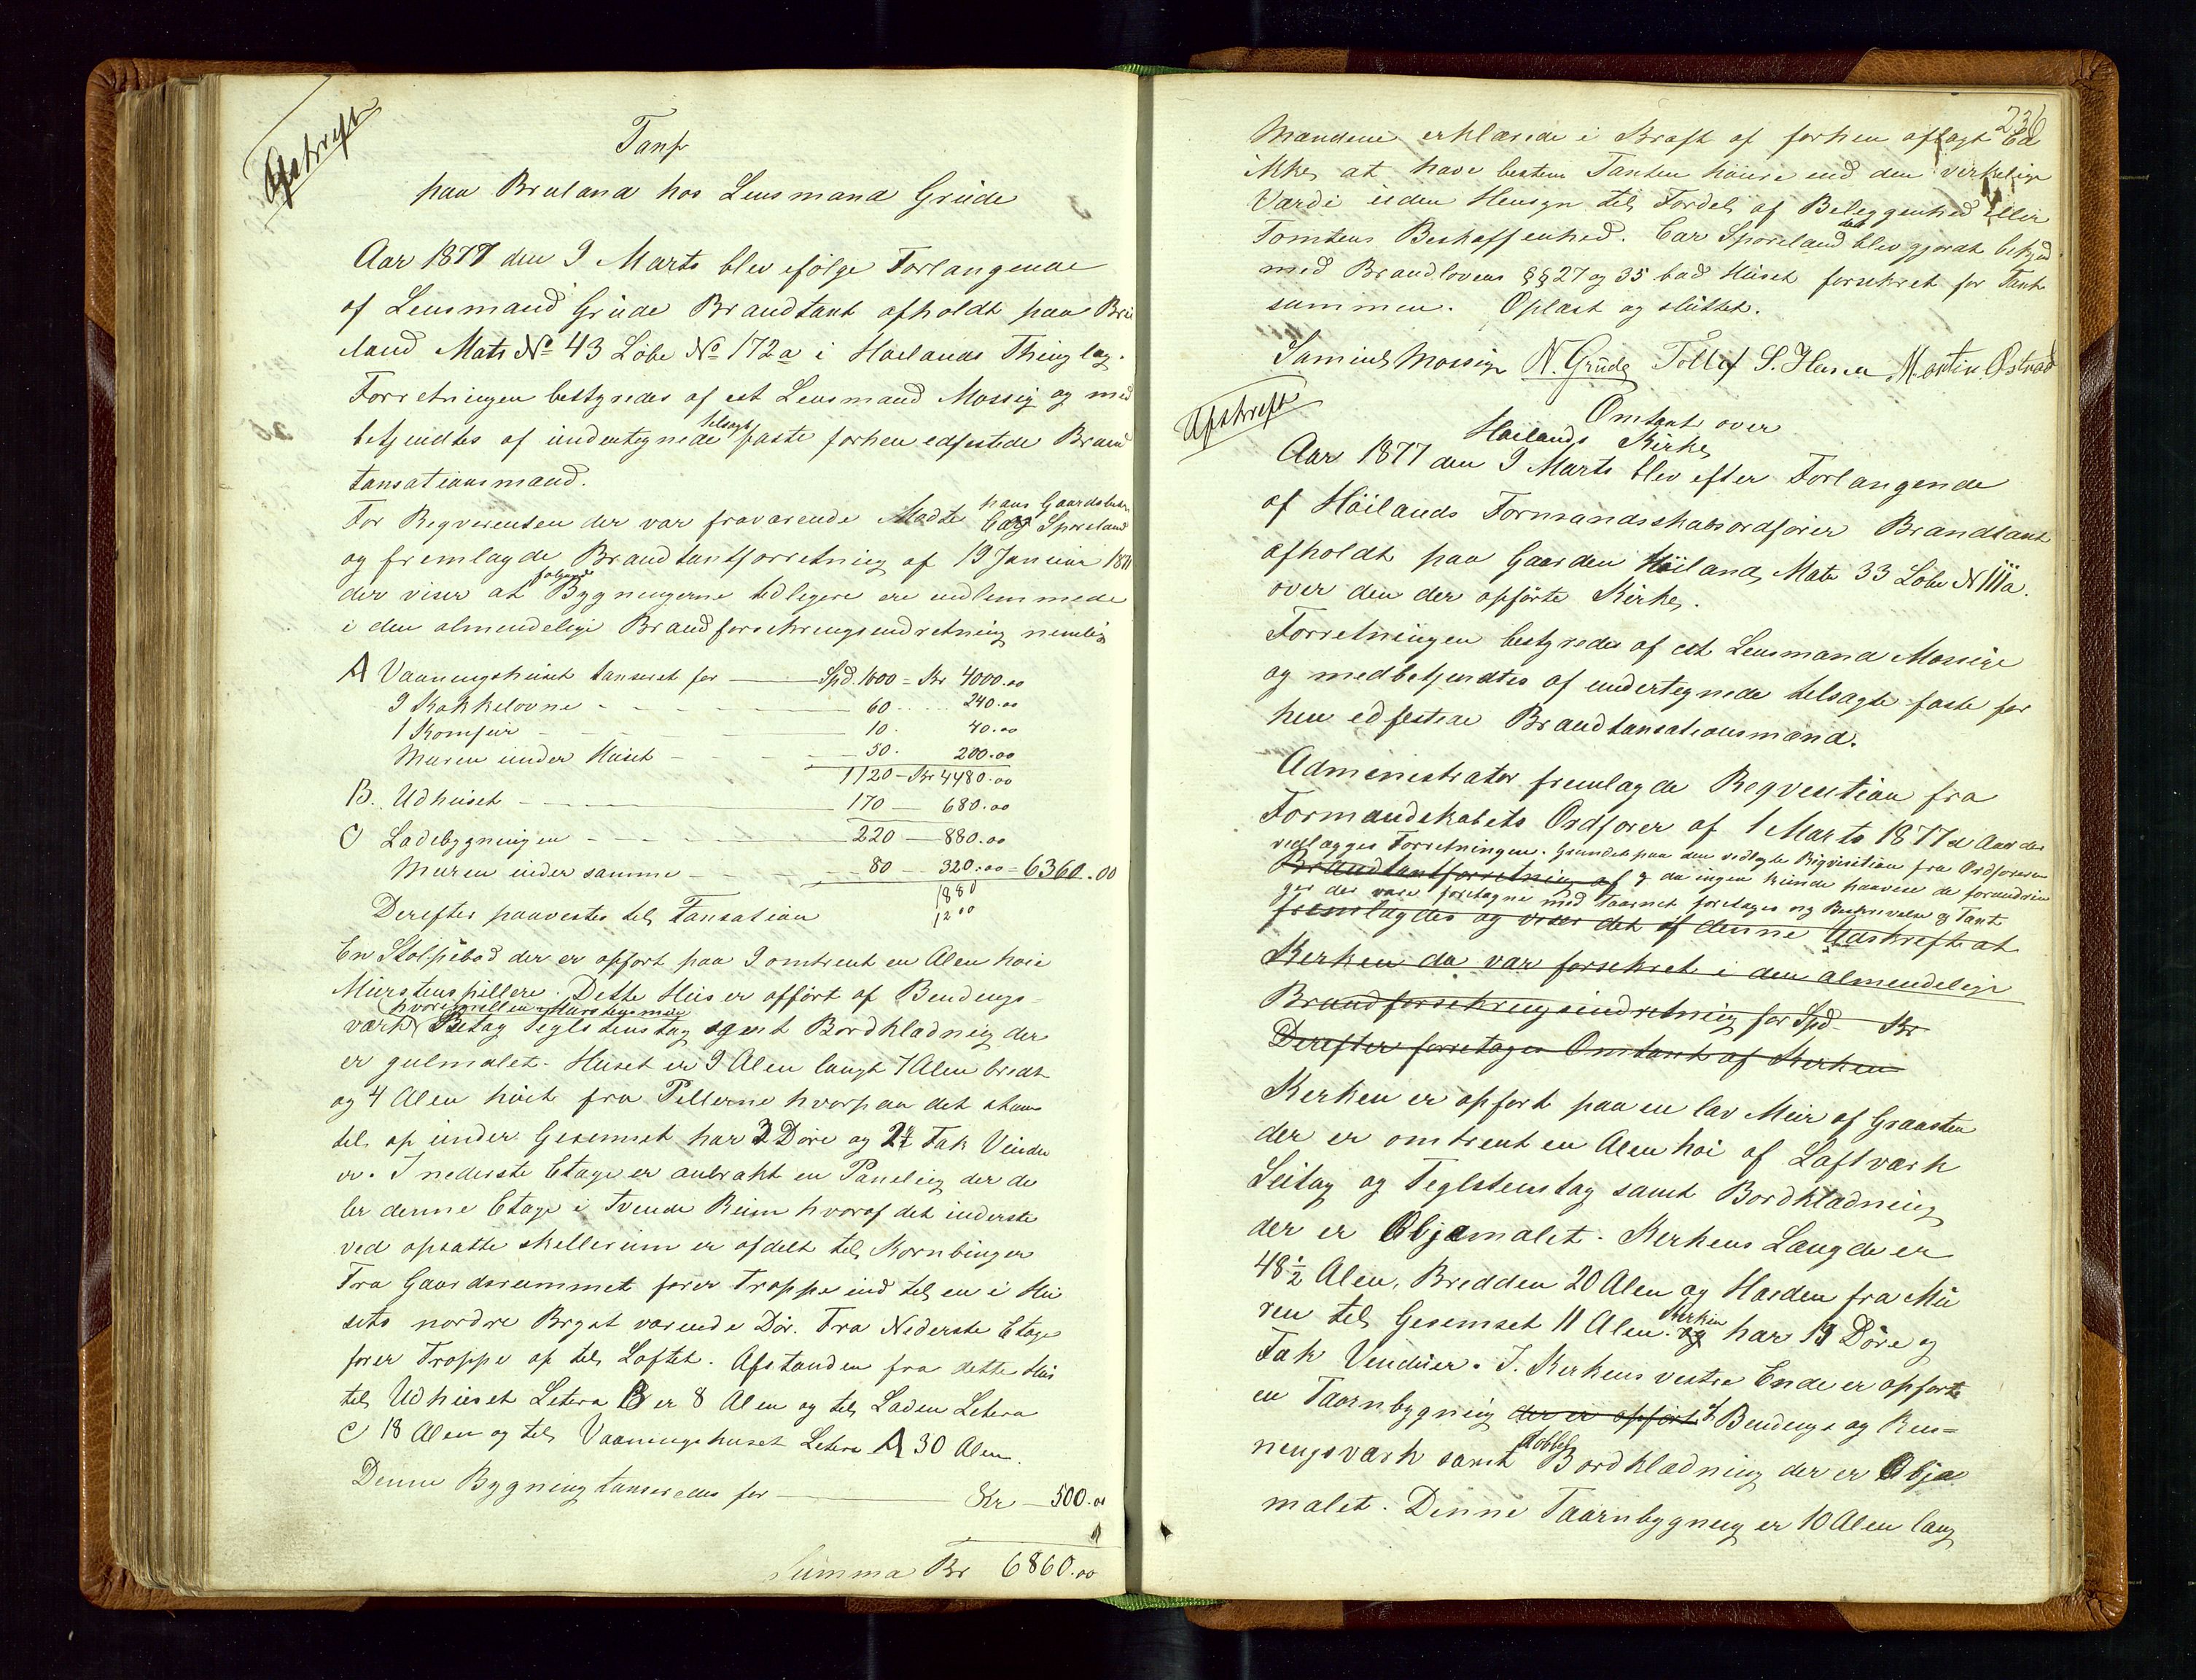 Afskreft
Taxt
paa Brualand hos Lensmand Grude
Aar 1877 den 9 Marts blev efølge Forlangende
af Lensmand Grude Brandtaxt afholdt paa Brü
eland Mats No 43 Løbe No 172a i Høilands Thinglag.
Forretningen bestyredes af cst Lensmand Mossig og med
betjendtes af undertegnede telsagte faste forhen edfestede Brand
taxsationsmænd.
For Reqverenten der var fraværende Mødte hans Gaardsbest Carl Sporeland
og fremlagde Brandtaxtforretning af 19 Januar 18
der viser at følgende Bygningerne tedligere ere endlemmede
i den almendelige Brandforsekrengsendretning nemlig
A Vaaningshuset taxseret for — Spd. 1000 = Kr 4000.00
9 Kakkelovne — 60 240.00
1 Komfur — 10. 40.00
Muren under Huset — 50. 200.00
1120 — Kr 4480.00
B. Udhuset — 170 — 680.00
C Ladebygningen — 220 — 880.00
Muren under samme — 80 — 320.00 = 6360.00
1880
1200
Derefter paavestes tel Taxsation
En Stolpebod der er opført paa 9 omtrent en Alen høie
Murstenspillere. Dette Hus er opført af Bendengs-
værk hvorimellem Murstensmur Betag Teglstenstag samt Bordklædning der
er gulmalet. Huset er 9 Alen langt 7 Alen bredt
og 4 Alen høit fra Pellerne hvorpaa det staar
tel op under Gesemset har 3 Døre og 2 Fak Vendu
er. I nederste Etage er anbrakt en Paneling der de
ler denne Etage i tvende Rum hvoraf det inderste
ved opsatte skellerum er afdelt tel Kornbinger
Fra Gaardsrummet fører Trappe ind tel en i Hu
sets nordre Bryst værende Dør. Fra Nederste Etage
fører Trappe op tel Loftet. Afstanden fra dette Hus
tel Udhuset Letera B er 8 Alen og tel Laden Letera
C 18 Alen og tel Vaaningshuset Letera A 30 Alen.
Denne Bygning taxseredes for — Kr — 500.00
Summa Kr 6860.00
236
Mændene erklærede i Kraft af forhen aflagt Ed
ikke at have bestem Taxten høiere end den verkelige
Værdi uden Hensyn tel Fordel af Beleggenhed eller
Tomtens Beskaffenhed. Carl Sporeland der blev gjordt bekjend
med Brandlovens §§ 27 og 35 bad Huset forsekret for Taxt
summen. Oplæst og sluttet.
Samuel Mossige N. Grude Tollef S. Hana Martin Østraad
Afskreft
Omtaxt over
Høilands Kirke
Aar 1877 den 9 Marts blev efter Forlangende
af Høilands Formandsskabsordfører Brandtaxt
afholdt paa Gaarden Høiland Mats 33 Løbe N 111a.
over den der opførte Kirke.
Forretningen bestyredes af cst Lensmand Mossige
og medbetjendtes af undertegnede telsagte faste for
hen edfestede Brandtaxsationsmænd.
Administrator fremlagde Reqvesetion fra
Formandskabets Ordfører af 1 Marts 1877 der
vedlægges Forretningen. Grundet paa den vedlagte Reqvisition fra Ordføreren
Brandtaxtforretning af og da ingen kunde paavise de forandrin
ger der være foretagne med Taarnet foretages ny Beskrivelse og Taxt
fremlagdes og veser det af denne Udskreft at
Kerken da var forsekret i den almendelige
Brandforsekrengsendretning for Spd — Kr
Derefter foretages Omtaxt af Kerken
Kerken er opført paa en lav Mur af Graasten
der er omtrent en Alen høi af Laftværk
Seitag og Teglstenstag samt Bordklædning
der er Oljemalet. Kerkens Længde er
48½ Alen, Bredden 20 Alen og Høiden fra Mu
ren tel Gesemset 11 Alen. Kerken har 3 Døre og
Fak Venduer. I Kerkens vestre Ende er opført
en Taarnbygning der er opført af Bendengs og Ren=
nengsværk samt dobbel Bordklædning der er Olje
malet. Denne Taarnbygning er 10 Alen lang